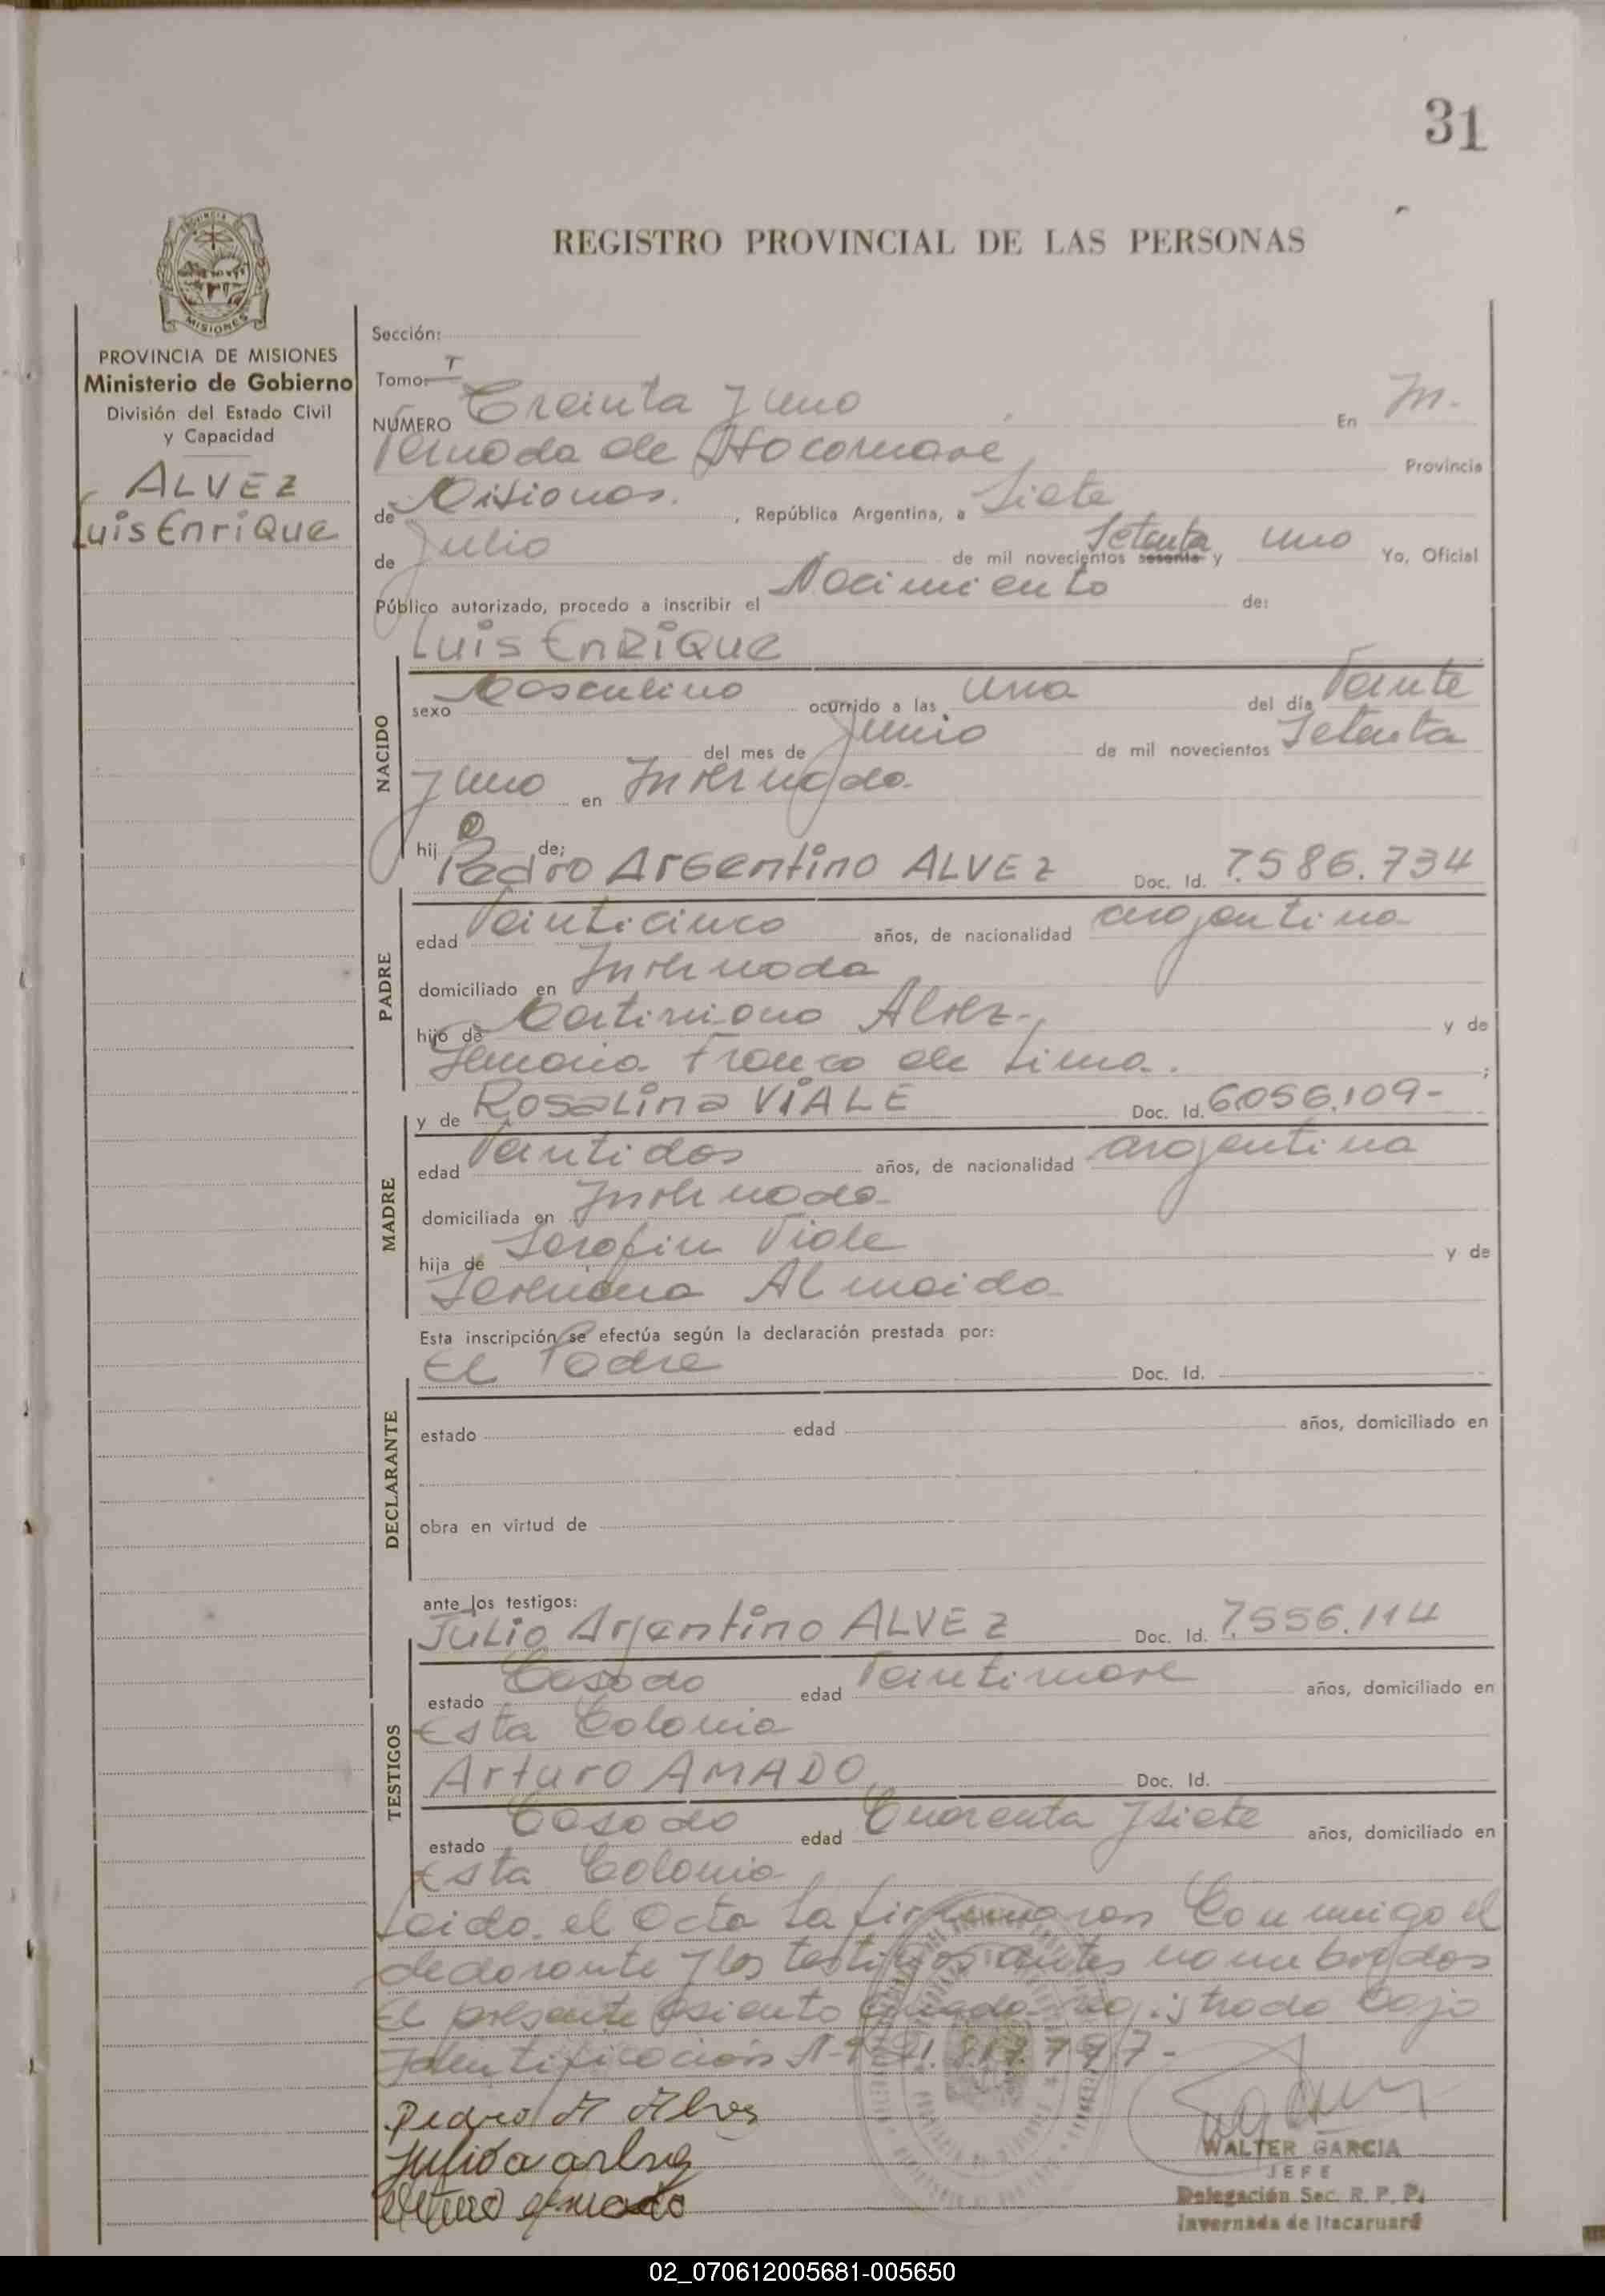 31
REGISTRO PROVINCIAL DE LAS PERSONAS
MISIONES
PROVINCIA DE MISIONES
Ministerio de Gobierno
División del Estado Civil
y Capacidad
ALVEZ
Luis Enrique
Sección:
Tomo: T
NÚMERO Treinta y uno En In-
vernada de Itacaruare Provincia
de Misiones. , República Argentina, a Siete
de Julio de mil novecientos sesenta Setenta y uno Yo, Oficial
Público autorizado, procedo a inscribir el Nacimiento de:
Luis Enrique
NACIDO
sexo Masculino ocurrido a las una del día Veinte
del mes de Junio de mil novecientos Setenta
y uno en Invernada
hijo de:
Pedro Argentino ALVEZ Doc. Id. 7.586.734
PADRE
edad Veinticinco años, de nacionalidad argentina
domiciliado en Invernada
hijo de Alvez y de
Franco de Lima. ;
y de Rosalina VIALE Doc. Id. 6.056.109-
MADRE
edad Veintidos años, de nacionalidad argentina
domiciliada en Invernada
hija de Serafin Viale y de
Almeida
Esta inscripción se efectúa según la declaración prestada por:
El Padre Doc. Id.
DECLARANTE
estado edad años, domiciliado en
obra en virtud de
ante los testigos:
Julio Argentino ALVEZ Doc. Id. 7.556.114
TESTIGOS
estado Casado edad Veintinove años, domiciliado en
Esta Colonia
Arturo AMADO Doc. Id.
estado Casado edad Cuarenta y siete años, domiciliado en
Esta Colonia
Leido el Acta la firmaron Conmigo el
declarante y los testigos antes nombrados
El presente asiento queda registrado bajo
Identificacion
Pedro A Alvez
WALTER GARCIA
JEFE
Delegación Sec. R. P. P.
Invernada de Itacaruaré
02_070612005681-005650